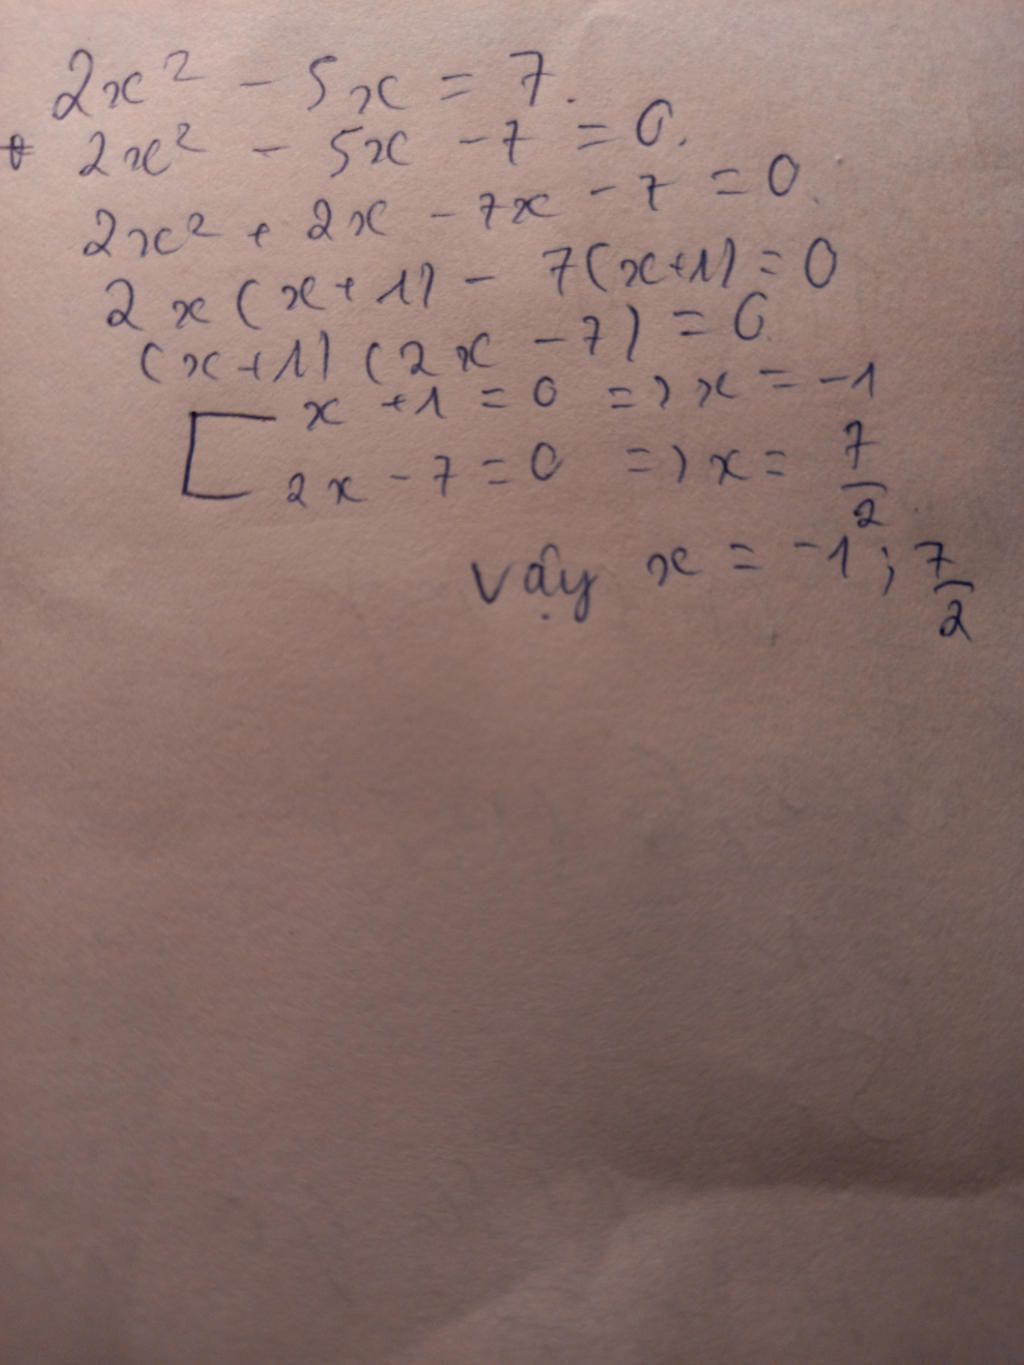 2x² - 5x = 7.
2x² - 5x - 7 = 0.
2x² + 2x - 7x - 7 = 0.
2x(x+1) - 7(x+1) = 0
(x+1)(2x - 7) = 0
x + 1 = 0 => x = -1
2x - 7 = 0 => x = 7/2
vậy x = -1; 7/2